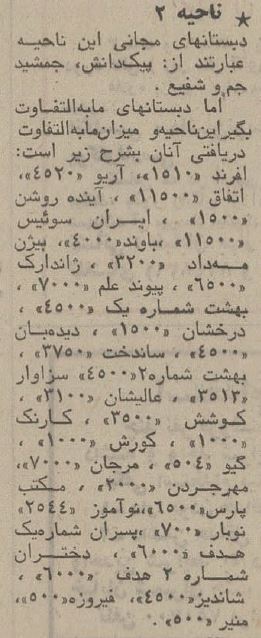 ★ ناحیه ۲
دبستانهای مجانی این ناحیه
عبارتند از: پیک‌دانش، جمشید
جم و شفیع .
اما دبستانهای مابه‌التفاوت
بگیر این‌ناحیه‌و میزان‌مابه‌التفاوت
دریافتی آنان بشرح زیر است:
افرند «۱۵۱۰»، آریو «۴۵۲۰»،
اتفاق «۱۱۵۰۰» ، آینده روشن
«۱۵۰۰» ، ایران سوئیس
«۱۱۵۰۰» ،باوند«۴۰۰۰»، بیژن
مه‌داد «۳۲۰۰» ، ژاندارک
«۶۵۰۰» ، پیوند علم «۷۰۰۰» ،
بهشت شماره یک «۴۵۰۰» ،
درخشان «۱۵۰۰» ، دیده‌بان
«۴۵۰۰» ، ساندخت «۳۷۵۰» ،
بهشت شماره۲«۴۵۰۰» سزاوار
«۳۵۱۳» ، عالیشان «۳۱۰۰» ،
کوشش «۳۵۰۰» ، کارنک
«۱۰۰۰» ، کورش «۱۰۰۰» ،
گیو «۵۰۴» ، مرجان «۷۰۰۰»،
مهرجردن «۲۰۰۰» ، مکتب
پارس«۶۵۰۰»،نوآموز «۲۵۴۴»
نوبار «۷۰۰» ،پسران شماره‌یک
هدف «۶۰۰۰» ، دختران
شماره ۲ هدف «۶۰۰۰» ،
شاندیز«۴۵۰۰»، فیروزه«۵۰۰»،
منیر «۵۰۰» .